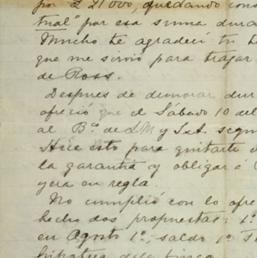 por £ 21000, quedando cons
trial" por esa suma dura
Mucho te agradecí tu
que me sirvió para trazar
de Ross.
Despues de demorar dur
ofreció que el Sábado 10 del
al Bco de L M y S.A. segun
Hice esto para quitarte
la garantía y obligar á
yera en regla.
No cumplió con lo ofre
hecho dos propuestas: 1ª
en Agosto 1º, saldo 1º
hipoteca de la finca